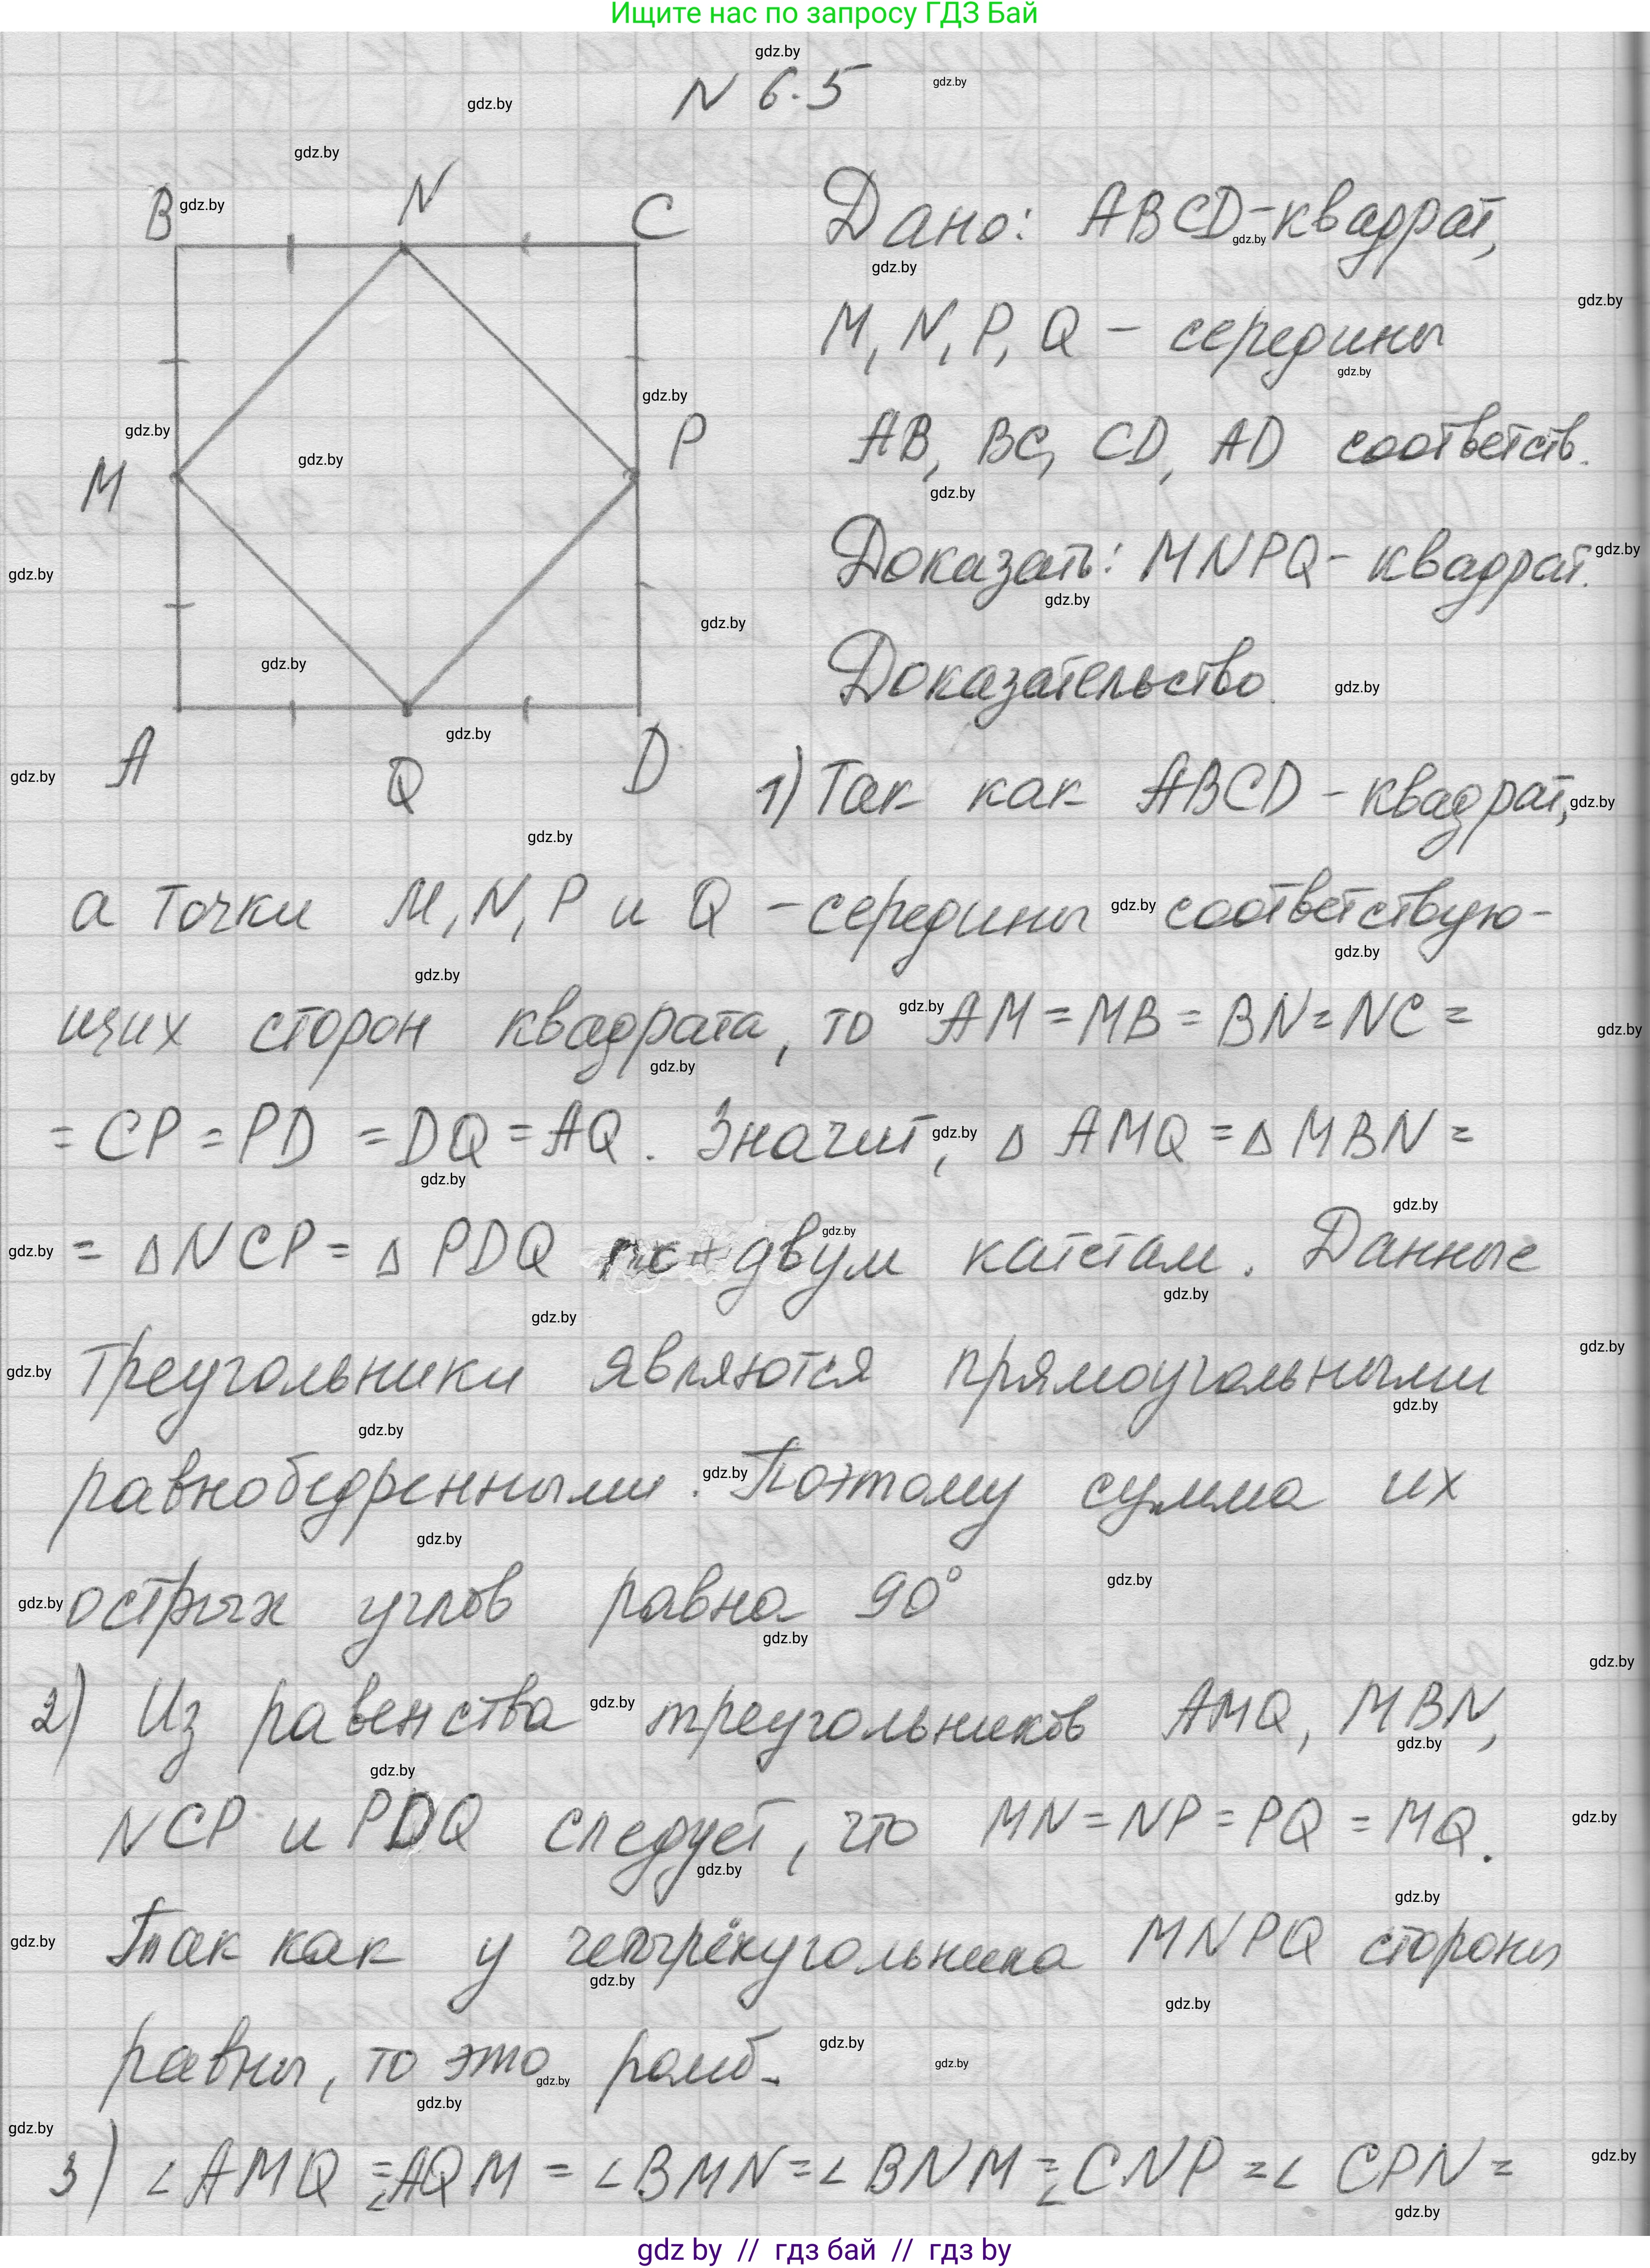 Ищите нас по запросу ГДЗ Бай
N 6.5
B N C
M P
A Q D
Дано: ABCD-квадрат,
M, N, P, Q - середины
AB, BC, CD, AD соответств.
Доказать: MNPQ- квадрат.
Доказательство.
1) Так как ABCD - квадрат,
а точки M, N, P и Q - середины соответствую-
щих сторон квадрата, то AM = MB = BN = NC =
= CP = PD = DQ = AQ. Значит, △ AMQ = △ MBN =
= △ NCP = △ PDQ по двум катетам. Данные
треугольники являются прямоугольными
равнобедренными. Поэтому сумма их
острых углов равна 90°
2) Из равенства треугольников AMQ, MBN,
NCP и PDQ следует, что MN = NP = PQ = MQ.
Так как у четырёхугольника MNPQ стороны
равны, то это ромб.
3) ∠AMQ = ∠AQM = ∠BMN = ∠BNM = ∠CNP = ∠CPN =
gdz by // гдз бай // гдз by